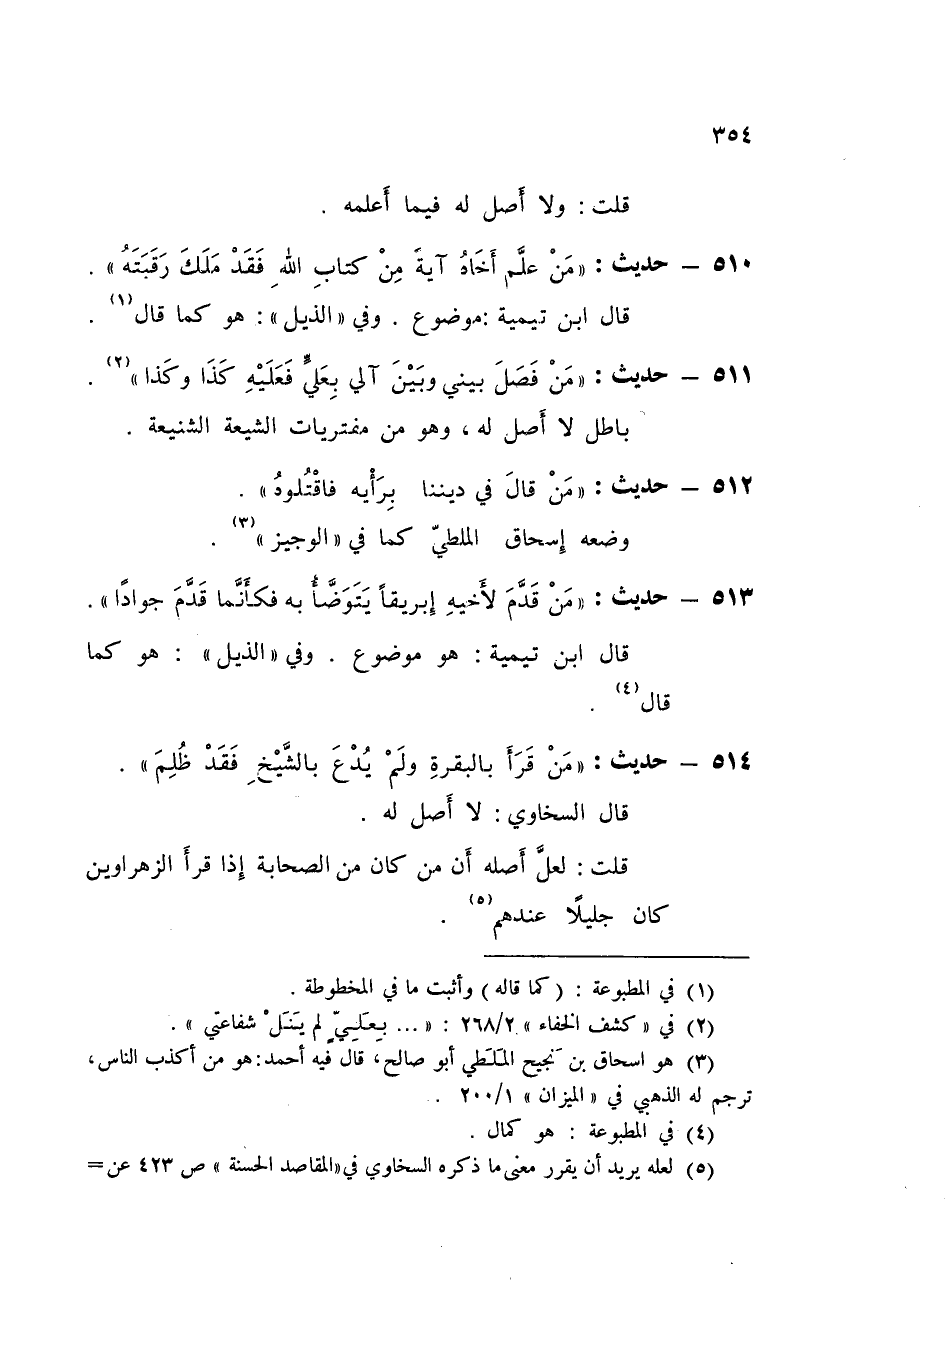 ٣٥٤
قلت : ولا أَصل له فيما أَعلمه .
٥١٠ – حديث : «مَنْ علَّم أَخَاهُ آيةً مِنْ كتابِ اللهِ فَقَدْ مَلَكَ رَقَبَتَهُ» .
قال ابن تيمية :موضوع . وفي «الذيل» : هو كما قال(١) .
٥١١ – حديث : «مَنْ فَصَلَ بيني وبَيْنَ آلي بِعَلِيٍّ فَعَلَيْهِ كَذَا وكَذا»(٢) .
باطل لا أَصل له ، وهو من مفتريات الشيعة الشنيعة .
٥١٢ – حديث : «مَنْ قالَ في ديننا بِرَأْيه فاقْتُلوهُ» .
وضعه إِسحاق الملطيّ كما في «الوجيز»(٣) .
٥١٣ – حديث : «مَنْ قَدَّمَ لأَخيهِ إِبريقاً يَتَوَضَّأُ به فكأَنَّما قَدَّمَ جوادًا» .
قال ابن تيمية : هو موضوع . وفي «الذيل» : هو كما
قال(٤) .
٥١٤ – حديث : «مَنْ قَرَأَ بالبقرةِ ولَمْ يُدْعَ بالشَّيْخِ فَقَدْ ظُلِمَ» .
قال السخاوي : لا أَصل له .
قلت : لعلَّ أَصله أَن من كان من الصحابة إِذا قرأَ الزهراوين
كان جليلًا عندهم(٥) .
(١) في المطبوعة : (كما قاله) وأثبت ما في المخطوطة .
(٢) في «كشف الخفاء» ٢٦٨/٢ : «... بِعَلِيّ لم يَنَلْ شفاعتي» .
(٣) هو اسحاق بن نَجيح المَلَطي أبو صالح، قال فيه أحمد:هو من أكذب الناس،
ترجم له الذهبي في «الميزان» ٢٠٠/١ .
(٤) في المطبوعة : هو كمال .
(٥) لعله يريد أن يقرر معنى ما ذكره السخاوي في«المقاصد الحسنة» ص ٤٢٣ عن=